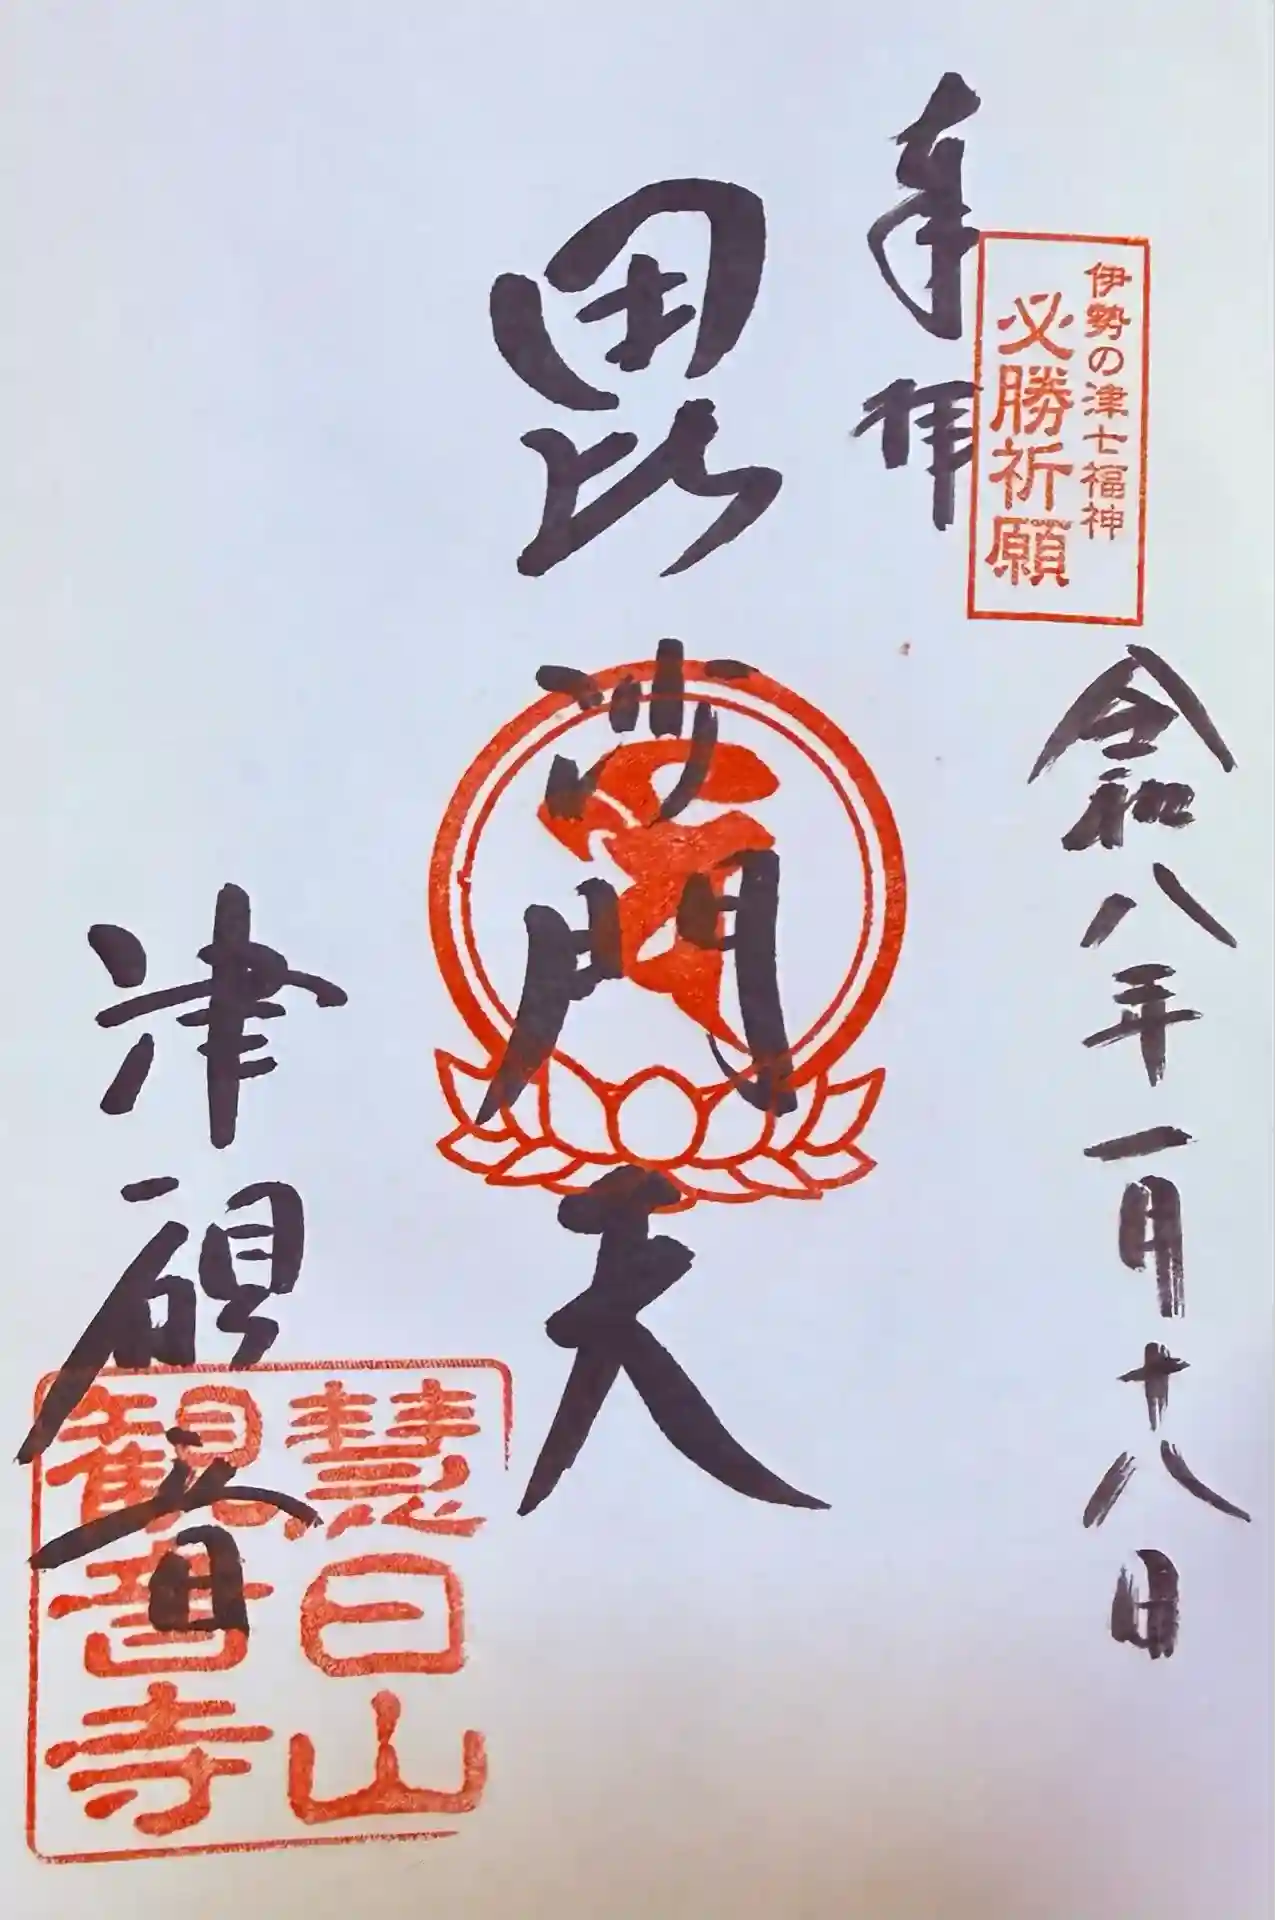 奉拝
伊勢の津七福神
必勝祈願
令和八年一月十八日
毘沙門天
津観音
慧日山
観音寺